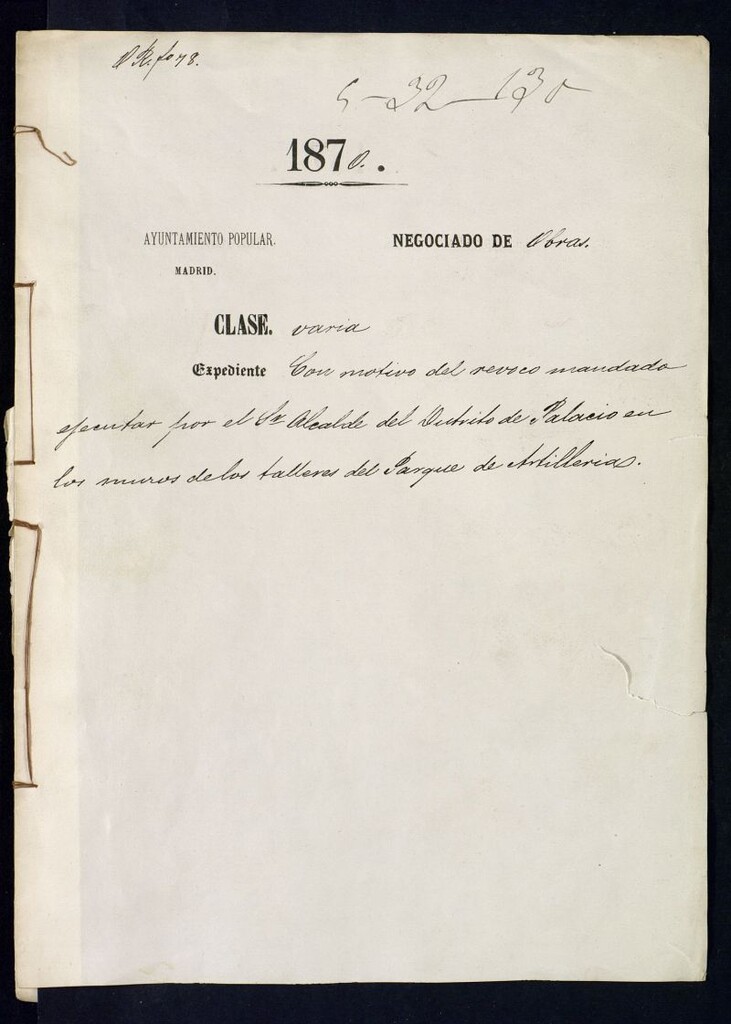 5-32-130
1870.
AYUNTAMIENTO POPULAR.
NEGOCIADO DE Obras.
MADRID.
CLASE. varia
Expediente Con motivo del revoco mandado
ejecutar por el Sr Alcalde del Distrito de Palacio en
los muros de los talleres del Parque de Artilleria.